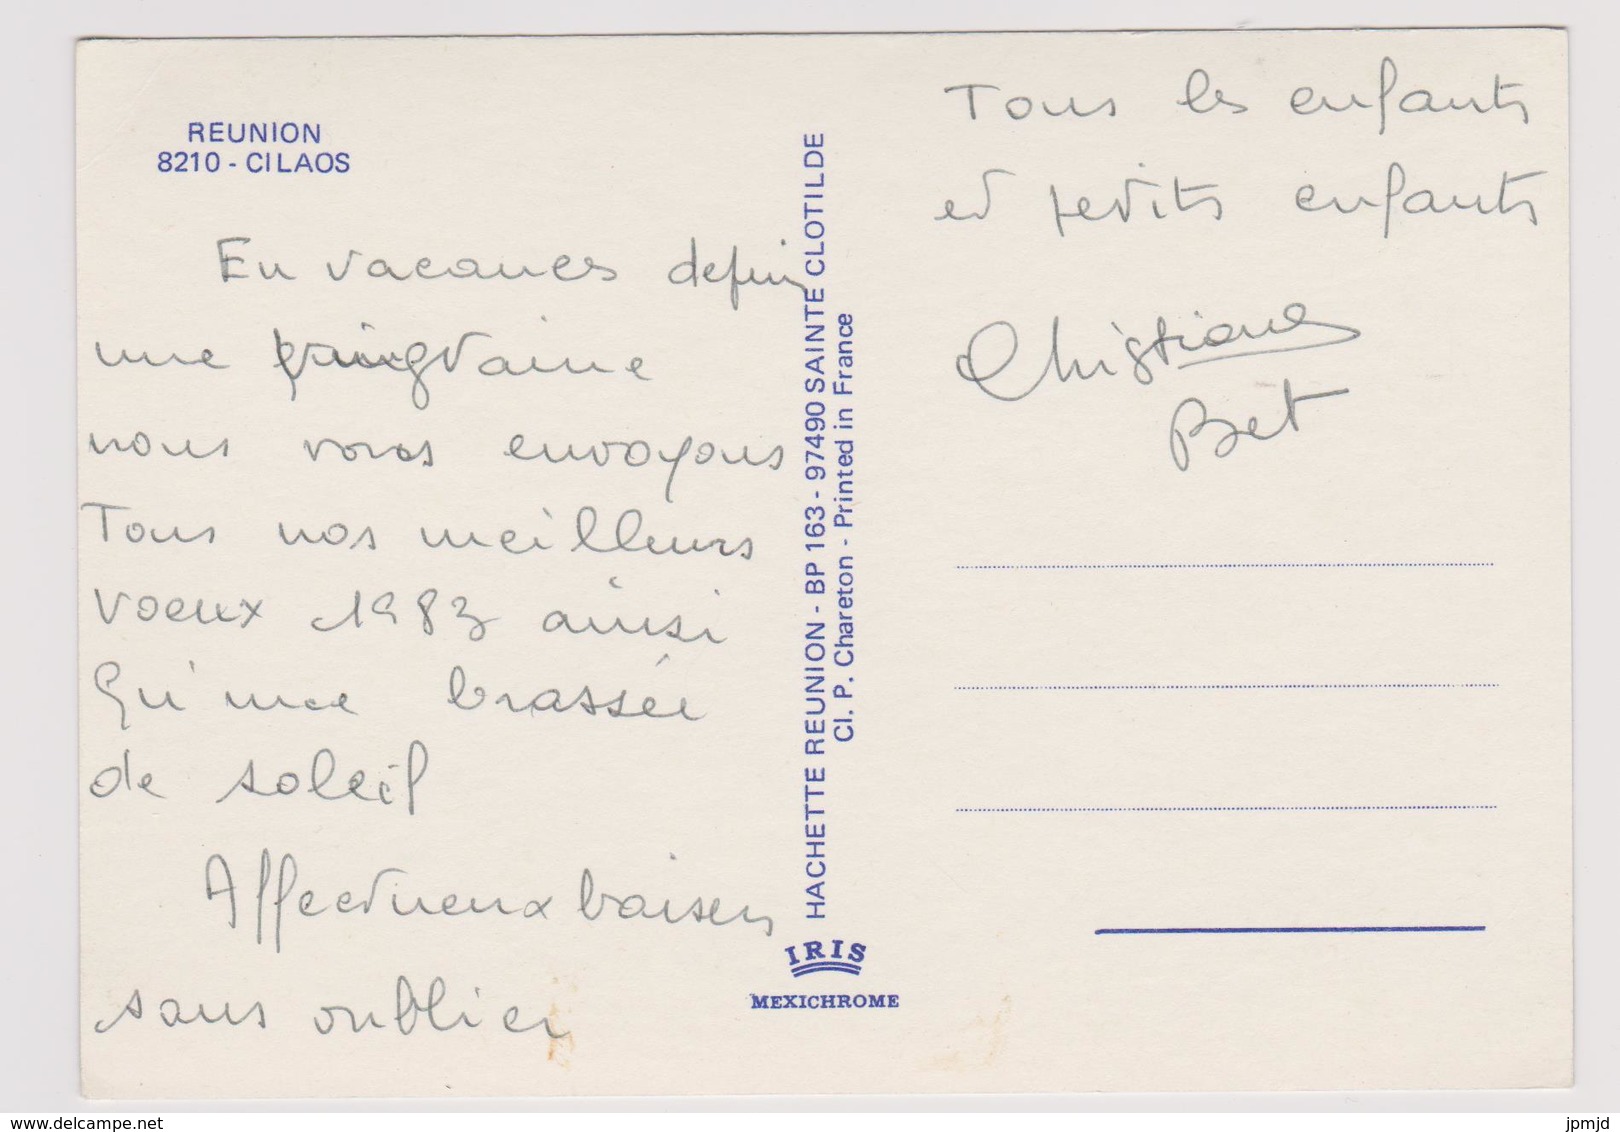 REUNION
8210 - CILAOS
En vacances depuis
une quingtaine
nous vous envoyons
Tous nos meilleurs
voeux 1983 ainsi
qu'une brassée
de soleil
Affectueux baisers
sans oublier
HACHETTE REUNION - BP 163 - 97490 SAINTE CLOTILDE
Cl. P. Chareton - Printed in France
IRIS
MEXICHROME
Tous les enfants
et petits enfants
Christiane
Bet
delcampe.net
jpmjd